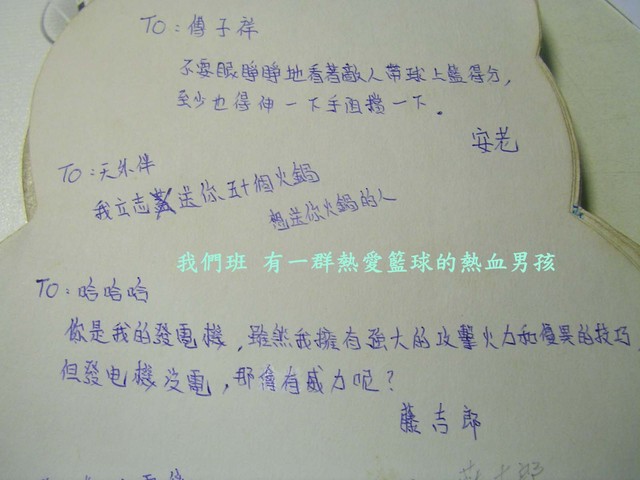 TO：傅子祥
不要眼睜睜地看著敵人帶球上籃得分，
至少也得伸一下手阻擋一下。
安老
TO：天外伴
我立志送你五十個火鍋
想送你火鍋的人
我們班 有一群熱愛籃球的熱血男孩
TO：哈哈哈
你是我的發電機，雖然我擁有強大的攻擊火力和優異的技巧，
但發电機沒電，那會有威力呢？
藤吉郎